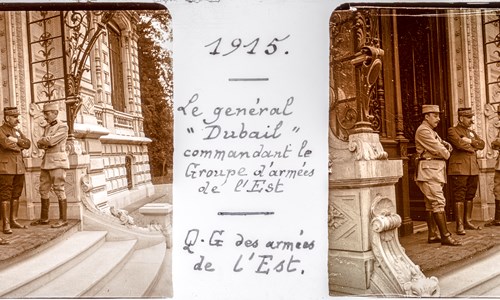 1915.
Le général
"Dubail"
commandant le
Groupe d'armées
de l'Est
Q.G des armées
de l'Est.